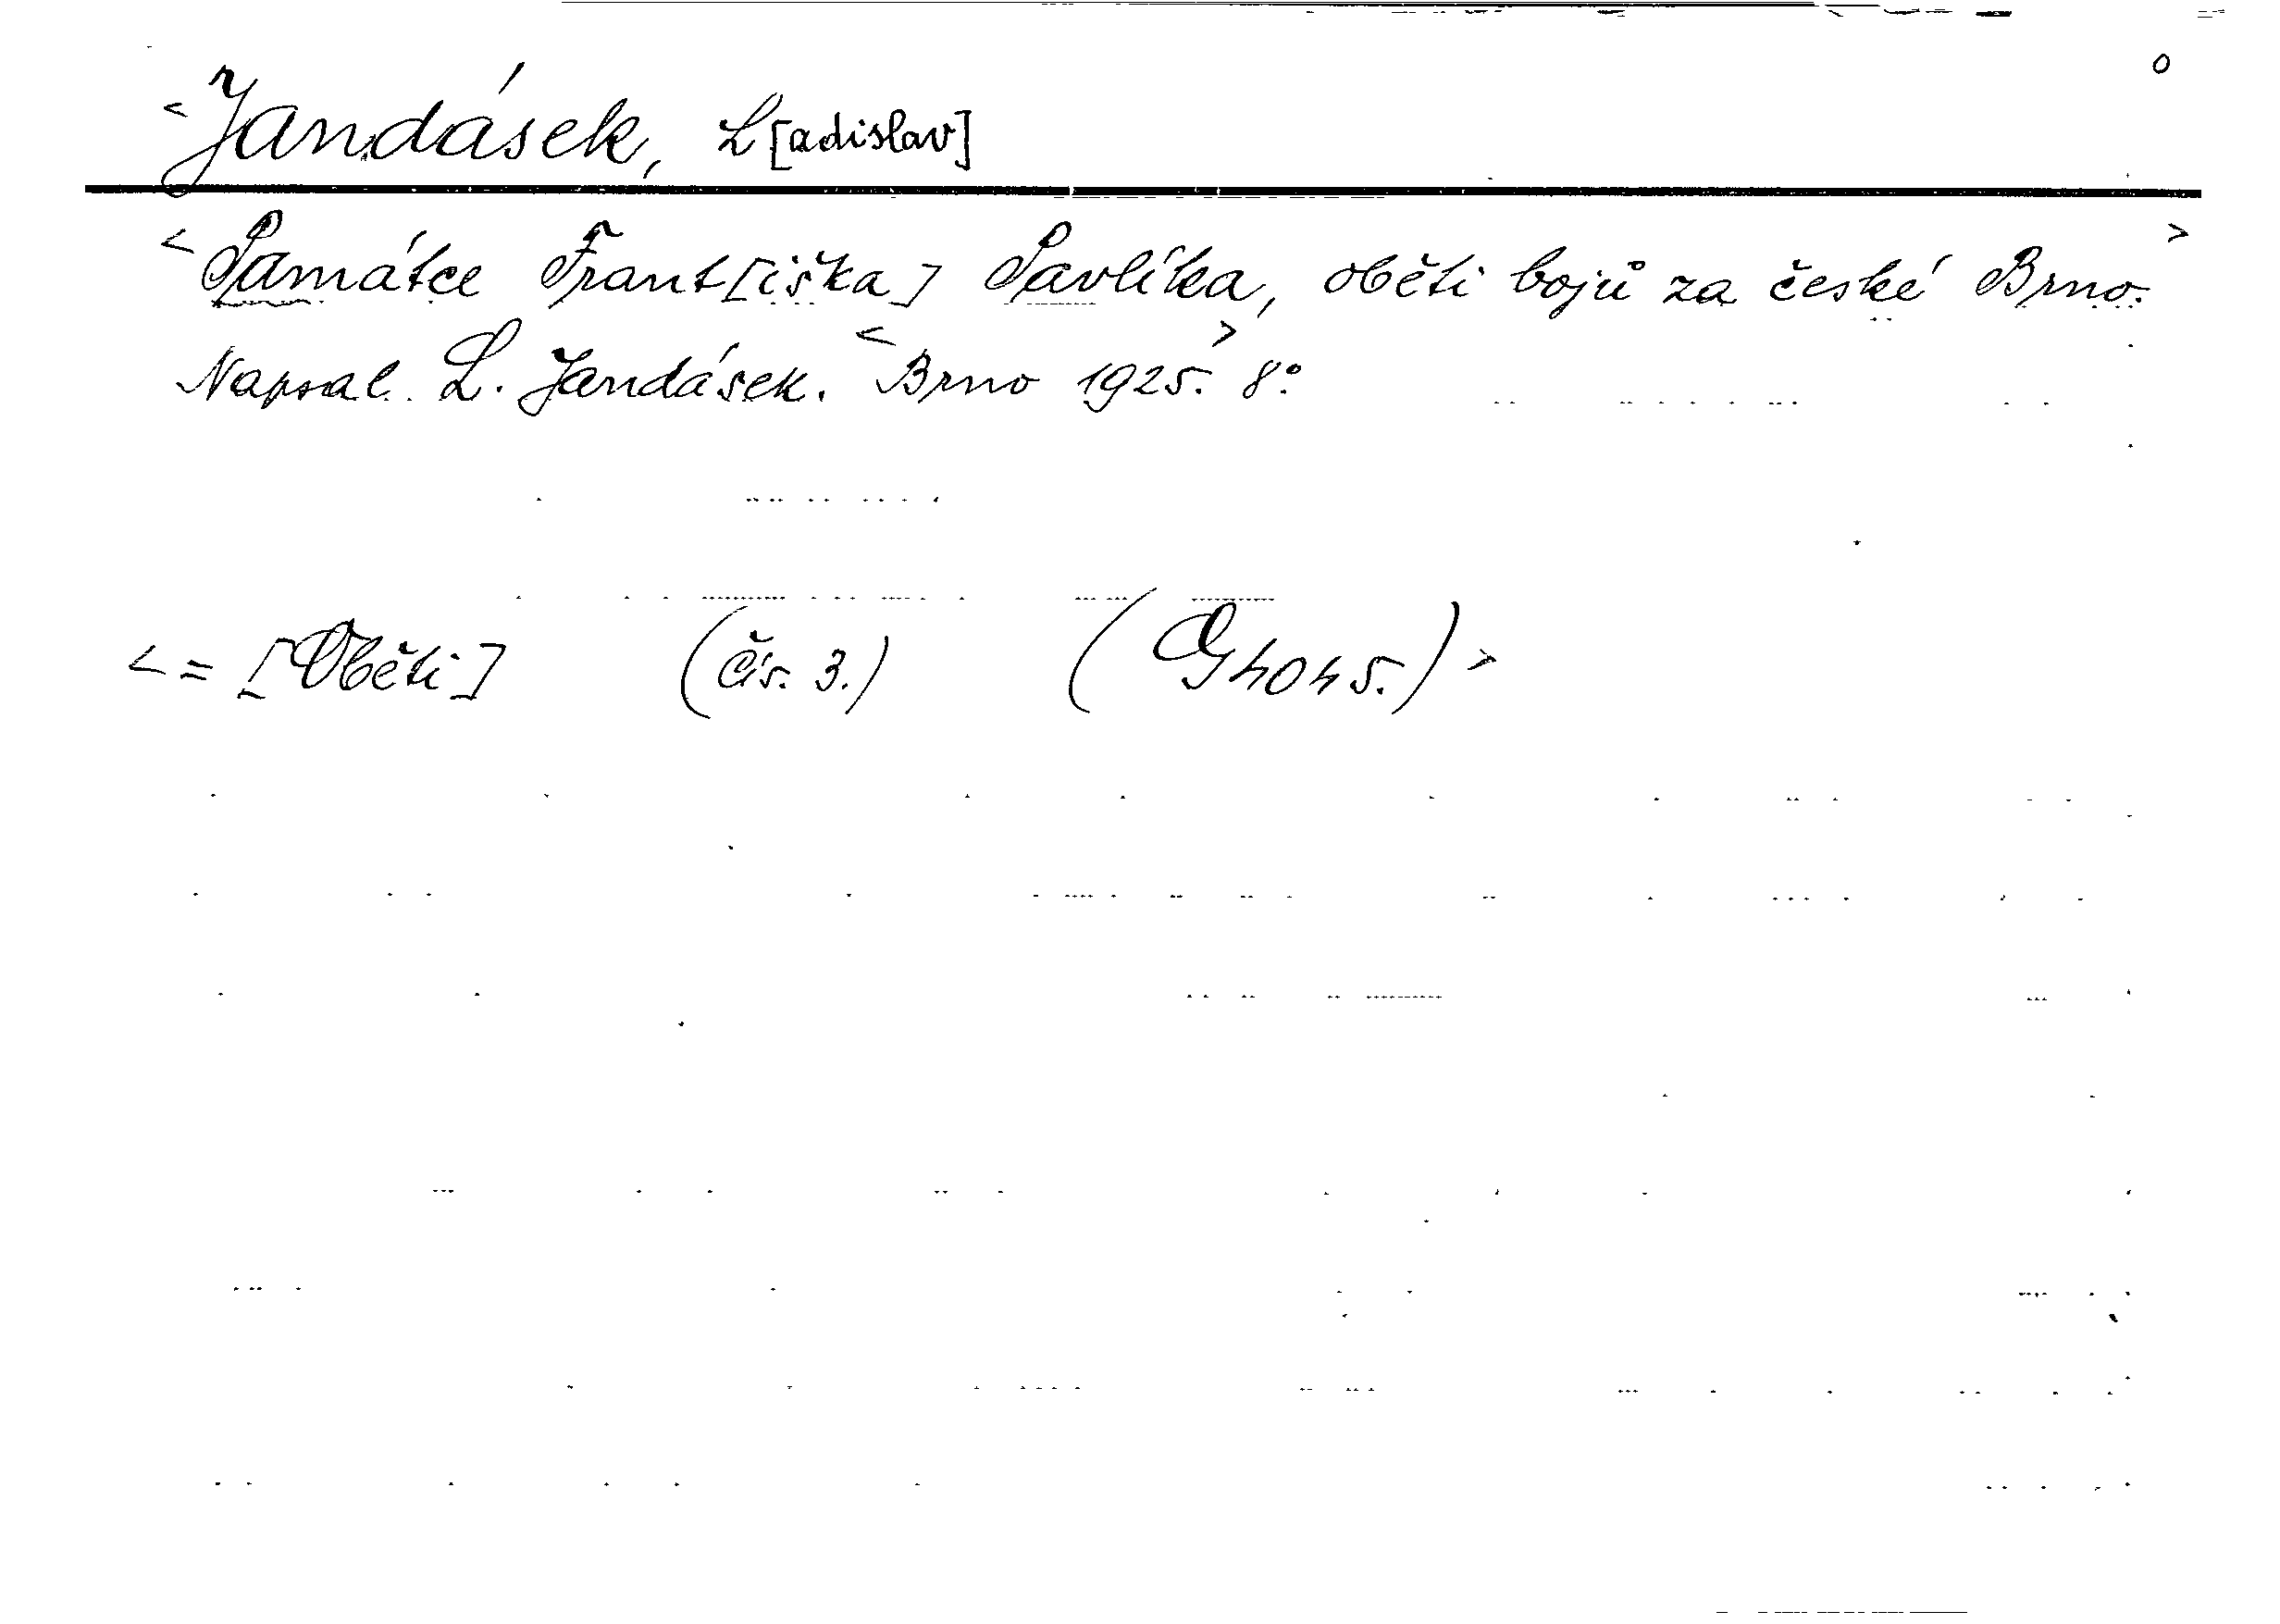 o
<Jandásek, L[adislav]
<Památce Frant[iška] Pavlíka, oběti bojů za české Brno.>
Napsal L. Jandásek. <Brno 1925.> 8°.
<= [Oběti] (čís. 3.) (G 4045.)>